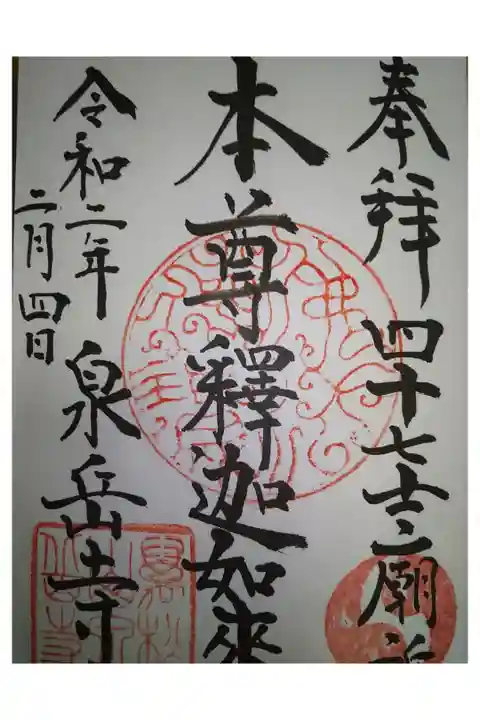 奉拝 四十七士廟所
本尊釋迦如來
令和二年
二月四日
泉岳寺